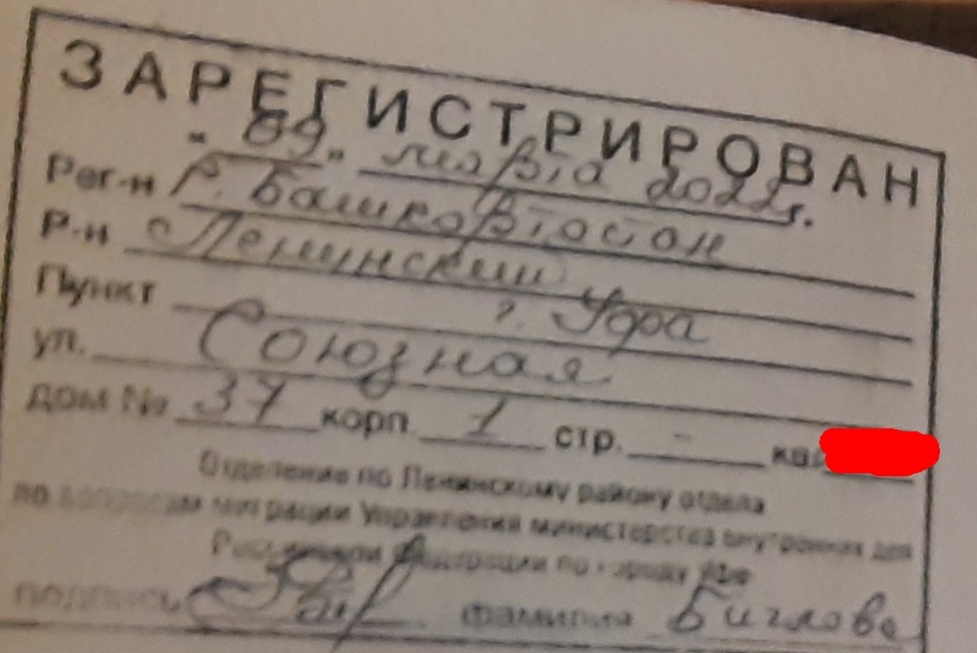 ЗАРЕГИСТРИРОВАН
"09" марта 2022г.
Рег-н Р. Башкортостан
Р-н Ленинский
Пункт г. Уфа
ул. Союзная
дом № 37 корп. 1 стр. - кв.
Отделение по Ленинскому району отдела
по вопросам миграции Управления министерства внутренних дел
Российской Федерации по городу Уфе
подпись фамилия Биглова